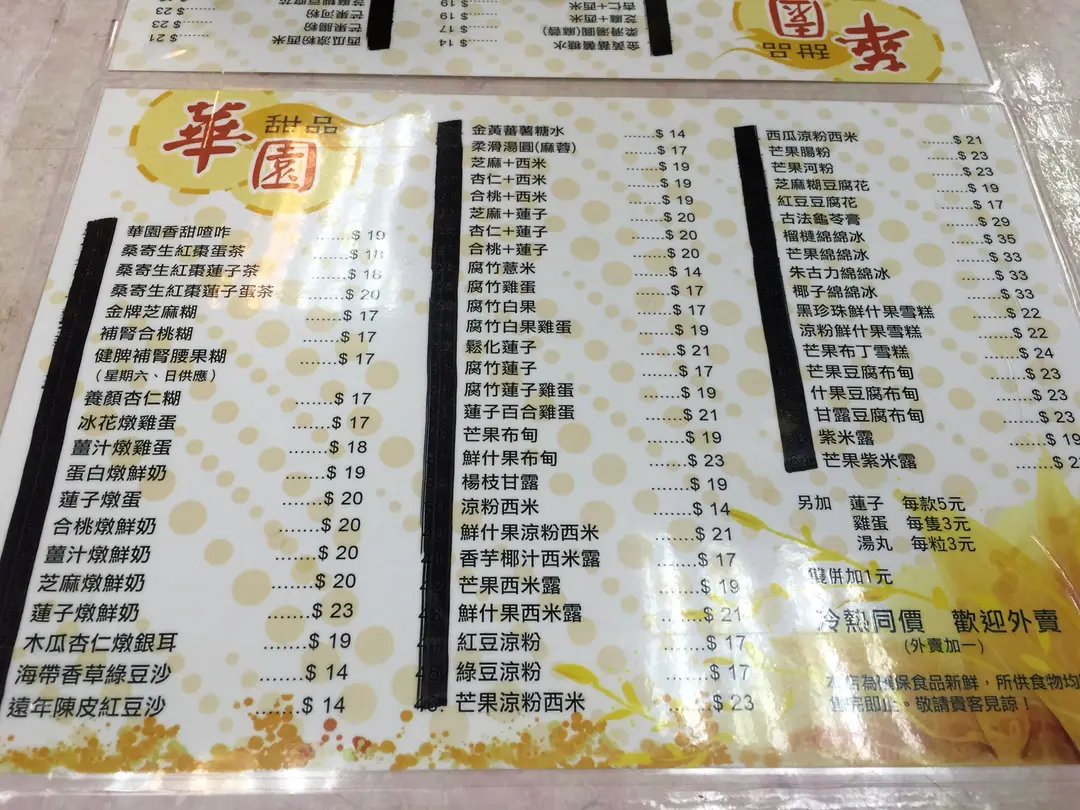 華園 甜品
華園香甜喳咋 ......$ 19
桑寄生紅棗蛋茶 ......$ 18
桑寄生紅棗蓮子茶 ......$ 18
桑寄生紅棗蓮子蛋茶 ......$ 20
金牌芝麻糊 ......$ 17
補腎合桃糊 ......$ 17
健脾補腎腰果糊 ......$ 17
(星期六、日供應)
養顏杏仁糊 ......$ 17
冰花燉雞蛋 ......$ 17
薑汁燉雞蛋 ......$ 18
蛋白燉鮮奶 ......$ 19
蓮子燉蛋 ......$ 20
合桃燉鮮奶 ......$ 20
薑汁燉鮮奶 ......$ 20
芝麻燉鮮奶 ......$ 20
蓮子燉鮮奶 ......$ 23
木瓜杏仁燉銀耳 ......$ 19
海帶香草綠豆沙 ......$ 14
遠年陳皮紅豆沙 ......$ 14
金黃蕃薯糖水 ......$ 14
柔滑湯圓(麻蓉) ......$ 17
芝麻+西米 ......$ 19
杏仁+西米 ......$ 19
合桃+西米 ......$ 19
芝麻+蓮子 ......$ 20
杏仁+蓮子 ......$ 20
合桃+蓮子 ......$ 20
腐竹薏米 ......$ 14
腐竹雞蛋 ......$ 17
腐竹白果 ......$ 17
腐竹白果雞蛋 ......$ 19
鬆化蓮子 ......$ 21
腐竹蓮子 ......$ 17
腐竹蓮子雞蛋 ......$ 19
蓮子百合雞蛋 ......$ 21
芒果布甸 ......$ 19
鮮什果布甸 ......$ 23
楊枝甘露 ......$ 19
涼粉西米 ......$ 14
鮮什果涼粉西米 ......$ 21
香芋椰汁西米露 ......$ 17
芒果西米露 ......$ 19
鮮什果西米露 ......$ 21
紅豆涼粉 ......$ 17
綠豆涼粉 ......$ 17
芒果涼粉西米 ......$ 23
西瓜涼粉西米 ......$ 21
芒果腸粉 ......$ 23
芒果河粉 ......$ 23
芝麻糊豆腐花 ......$ 19
紅豆豆腐花 ......$ 17
古法龜苓膏 ......$ 29
榴槤綿綿冰 ......$ 35
芒果綿綿冰 ......$ 33
朱古力綿綿冰 ......$ 33
椰子綿綿冰 ......$ 33
黑珍珠鮮什果雪糕 ......$ 22
涼粉鮮什果雪糕 ......$ 22
芒果布丁雪糕 ......$ 24
芒果豆腐布甸 ......$ 23
什果豆腐布甸 ......$ 23
甘露豆腐布甸 ......$ 23
紫米露 ......$ 19
芒果紫米露 ......$ 2
另加 蓮子 每款5元
雞蛋 每隻3元
湯丸 每粒3元
雙併加1元
冷熱同價 歡迎外賣
(外賣加一)
本店為確保食品新鮮，所供食物均
售完即止。敬請貴客見諒！